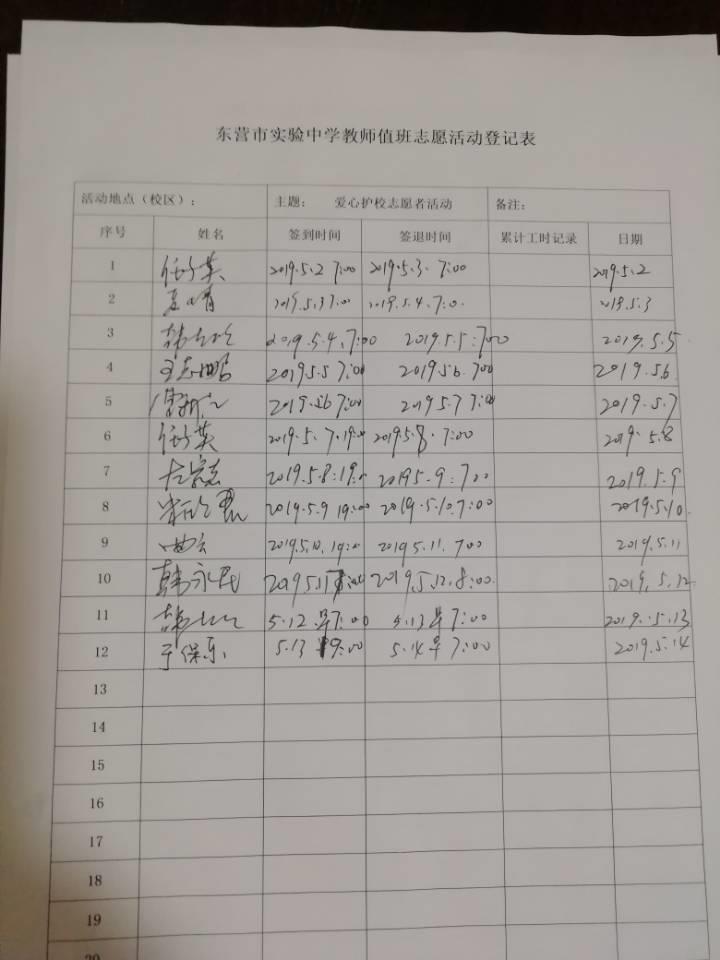 东营市实验中学教师值班志愿活动登记表
活动地点（校区）： 主题： 爱心护校志愿者活动 备注：
序号 姓名 签到时间 签退时间 累计工时记录 日期
1 2019.5.2 7:00 2019.5.3. 7:00 2019.5.2
2 2019.5.3 7:00 2019.5.4. 7:0. 2019.5.3
3 2019.5.4. 7:00 2019.5.5:7:00 2019.5.5
4 2019.5.5 7:00 2019.5.6. 7:00 2019.5.6
5 2019.5.6 7:00 2019.5.7 7:00 2019.5.7
6 2019.5.7.19:00 2019.5.8.7:00 2019.5.8
7 2019.5.8:19:0 2019.5.9:7:00 2019.5.9
8 2019.5.9 19:00 2019.5.10.7:00 2019.5.10.
9 2019.5.10.19:00 2019.5.11.7:00 2019.5.11
10 韩永民 2019.5.12.8:00. 2019.5.12
11 5.12.早7:00 5.13早7:00 2019.5.13
12 于保东 5.13 19:00 5.14早7:00 2019.5.14
13
14
15
16
17
18
19
20